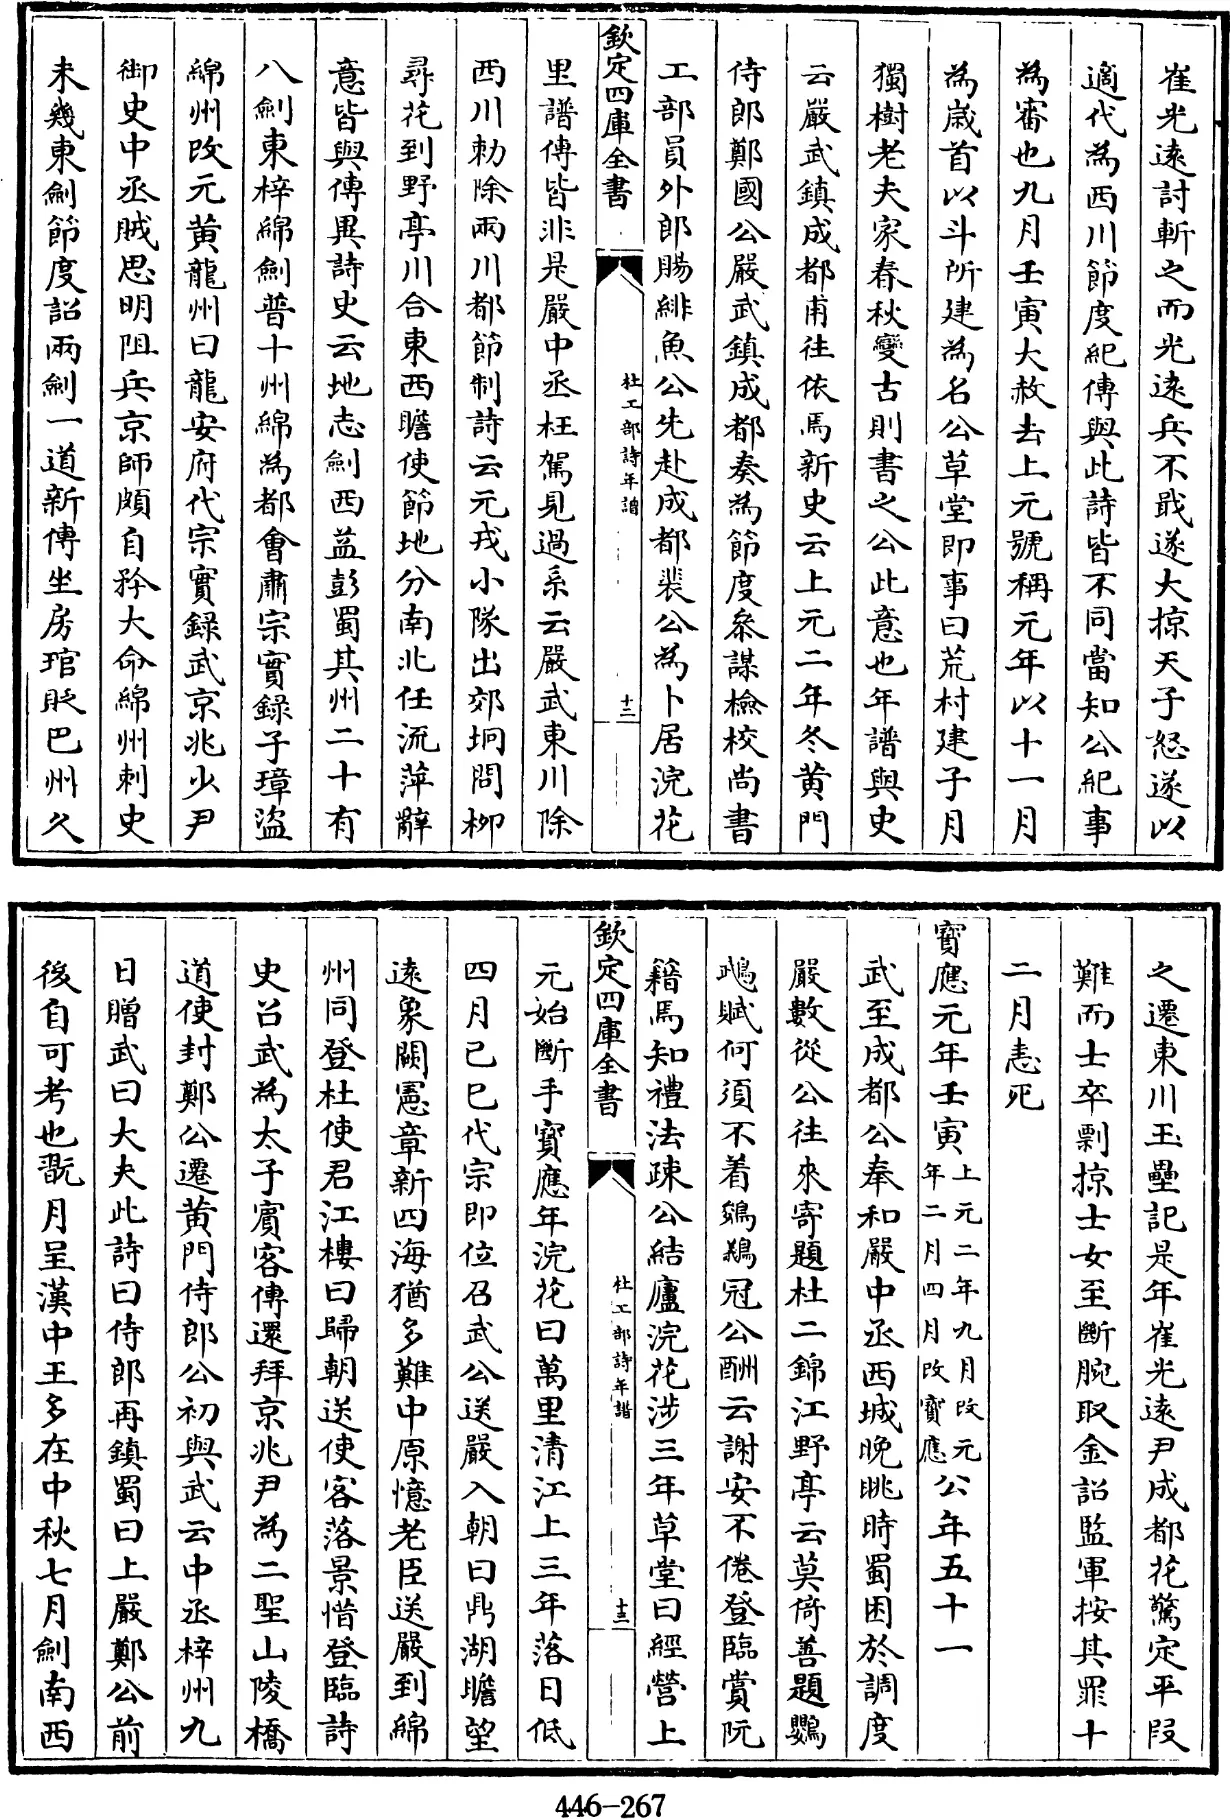 崔光遠討斬之而光遠兵不戢遂大掠天子怒遂以
適代為西川節度紀傳與此詩皆不同當知公紀事
為審也九月壬寅大赦去上元號稱元年以十一月
為歲首以斗所建為名公草堂即事曰荒村建子月
獨樹老夫家春秋變古則書之公此意也年譜與史
云嚴武鎮成都甫往依焉新史云上元二年冬黄門
侍郎鄭國公嚴武鎮成都奏為節度參謀檢校尚書
工部員外郎賜緋魚公先赴成都裴公為卜居浣花
欽定四庫全書
杜工部詩年譜
十二
里譜傳皆非是嚴中丞枉駕見過系云嚴武東川除
西川勅除兩川都節制詩云元戎小隊出郊坰問栁
尋花到野亭川合東西瞻使節地分南北任流萍辭
意皆與傳異詩史云地志劍西益彭蜀其州二十有
八劍東梓綿劍普十州綿為都㑹肅宗實録子璋盜
綿州改元黄龍州曰龍安府代宗實録武京兆少尹
御史中丞賊思明阻兵京師頗自矜大命綿州刺史
未幾東劍節度詔兩劍一道新傳坐房琯貶巴州久
之遷東川玉壘記是年崔光遠尹成都花驚定平叚
難而士卒剽掠士女至斷腕取金詔監軍按其罪十
二月恚死
寳應元年壬寅上元二年九月改元年二月四月改寳應公年五十一
武至成都公奉和嚴中丞西城晚眺時蜀困於調度
嚴數從公往來寄題杜二錦江野亭云莫倚善題鸚
鵡賦何須不着鵕鸃冠公酬云謝安不倦登臨賞阮
籍焉知禮法疎公結廬浣花涉三年草堂曰經營上
欽定四庫全書
杜工部詩年譜
十三
元始斷手寳應年浣花曰萬里清江上三年落日低
四月己巳代宗即位召武公送嚴入朝曰鼎湖瞻望
遠象闕憲章新四海猶多難中原憶老臣送嚴到綿
州同登杜使君江樓曰歸朝送使客落景惜登臨詩
史召武為太子賓客傳還拜京兆尹為二聖山陵橋
道使封鄭公遷黄門侍郎公初與武云中丞梓州九
日贈武曰大夫此詩曰侍郎再鎮蜀曰上嚴鄭公前
後自可考也翫月呈漢中王多在中秋七月劍南西
446-267